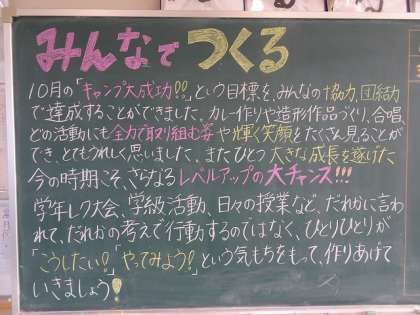 みんなでつくる
10月の「キャンプ大成功!!」という目標を、みんなの協力、団結力
で達成することができました。カレー作りや造形作品づくり、合唱、
どの活動にも全力で取り組む姿や輝く笑顔をたくさん見ることが
でき、とてもうれしく思いました。またひとつ大きな成長を遂げた
今の時期こそ、さらなるレベルアップの大チャンス!!!
学年レク大会、学級活動、日々の授業など、だれかに言わ
れて、だれかの考えで行動するのではなく、ひとりひとりが
「こうしたい!」「やってみよう!」という気もちをもって、作りあげて
いきましょう!